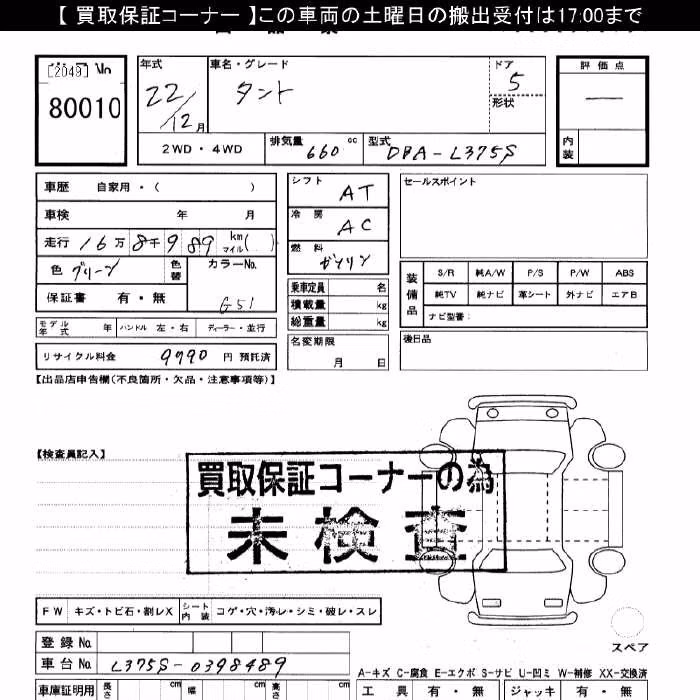 【 買取保証コーナー 】この車両の土曜日の搬出受付は17:00まで
[2049] No
80010
年式 22/12月
車名・グレード タント
ドア 5
形状
評価点 —
内装
2WD・4WD
排気量 660 cc
型式 DBA-L375S
車歴 自家用・( )
車検 年 月
走行 16万8千989 km マイル( )
色 グリーン
色替
カラーNo. G51
保証書 有・無
モデル年式 年
ハンドル 左・右
ディーラー・並行
リサイクル料金 9790 円 預託済
シフト AT
冷房 AC
燃料 ガソリン
乗車定員 名
積載量 kg
総重量 kg
名変期限 月 日
セールスポイント
装備品
S/R 純A/W P/S P/W ABS
純TV 純ナビ 革シート 外ナビ エアB
ナビ型番:
後日品
【出品店申告欄(不良箇所・欠品・注意事項等)】
【検査員記入】
買取保証コーナーの為
未検査
FW キズ・トビ石・割レX
シート内装 コゲ・穴・汚レ・シミ・破レ・スレ
スペア
登録No.
車台No. L375S-0398489
A-キズ C-腐食 E-エクボ S-サビ U-凹ミ W-補修 XX-交換済
車庫証明用 長さ cm 幅 cm 高さ cm
工具 有・無 ジャッキ 有・無